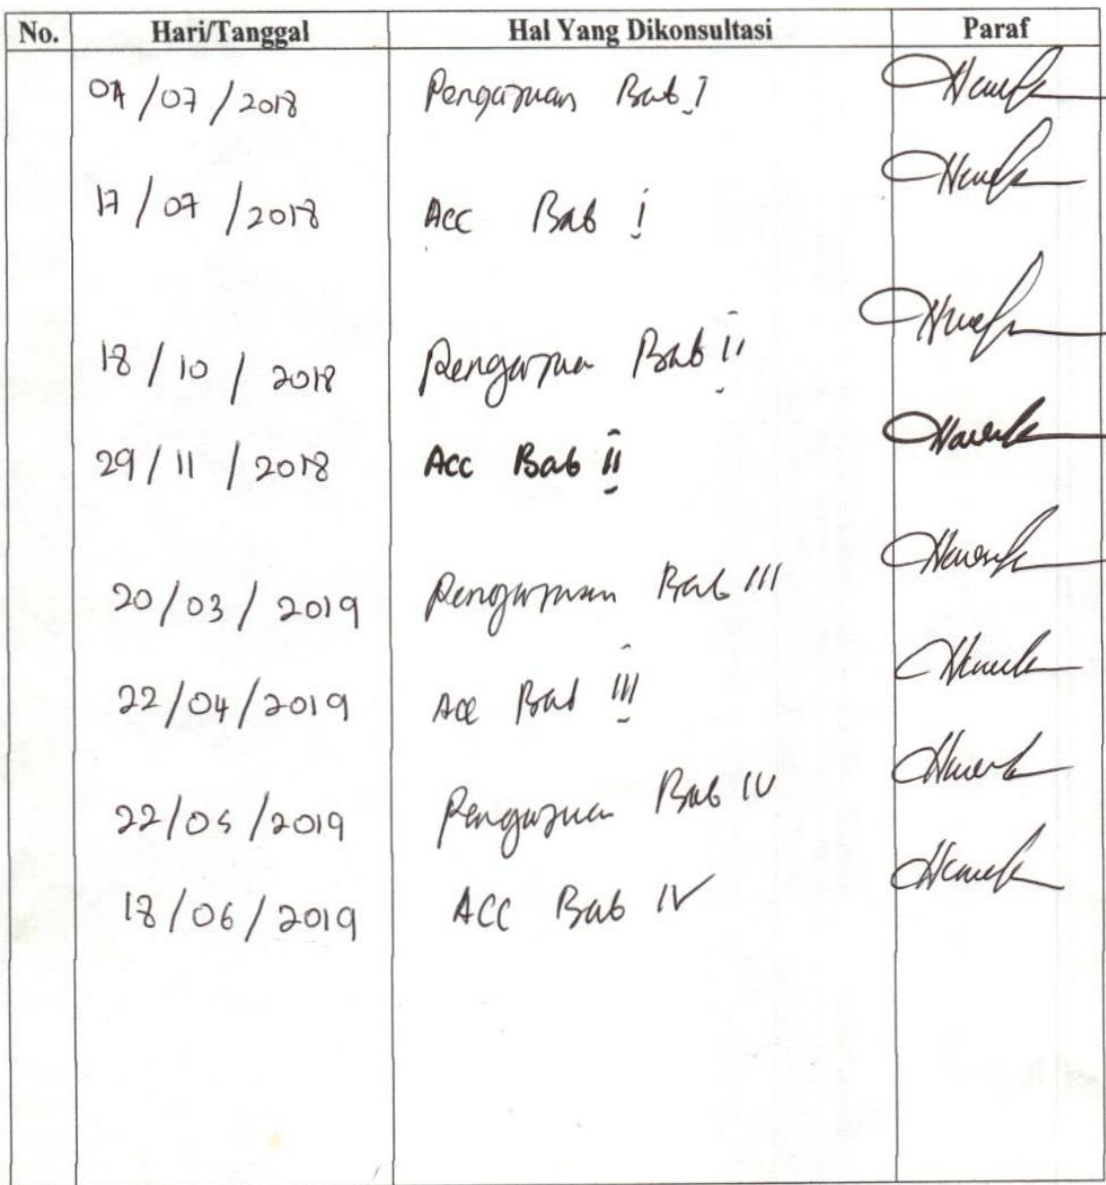 No. Hari/Tanggal Hal Yang Dikonsultasi Paraf
/07/2018 Pengajuan Bab I
17/07/2018 Acc Bab I
18/10/2018 Pengajuan Bab II
29/11/2018 Acc Bab II
20/03/2019 Pengajuan Bab III
22/04/2019 Acc Bab III
22/05/2019 Pengajuan Bab IV
18/06/2019 ACC Bab IV